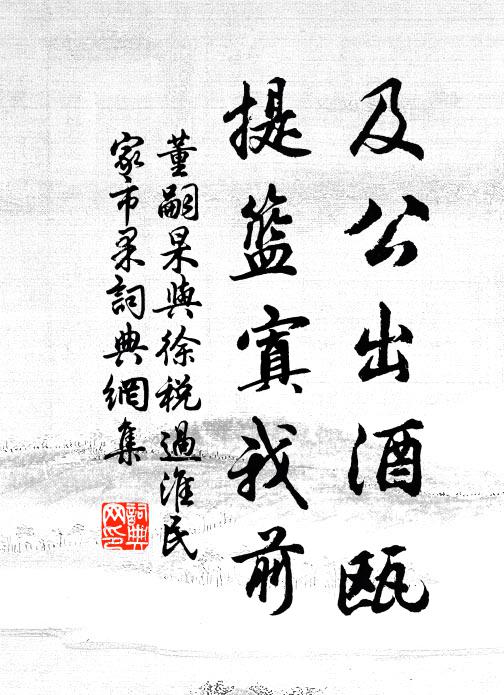 及公出酒甌
提籃寘我前
董嗣杲與徐税過淮民
家市果詞典網集
詞典
网印